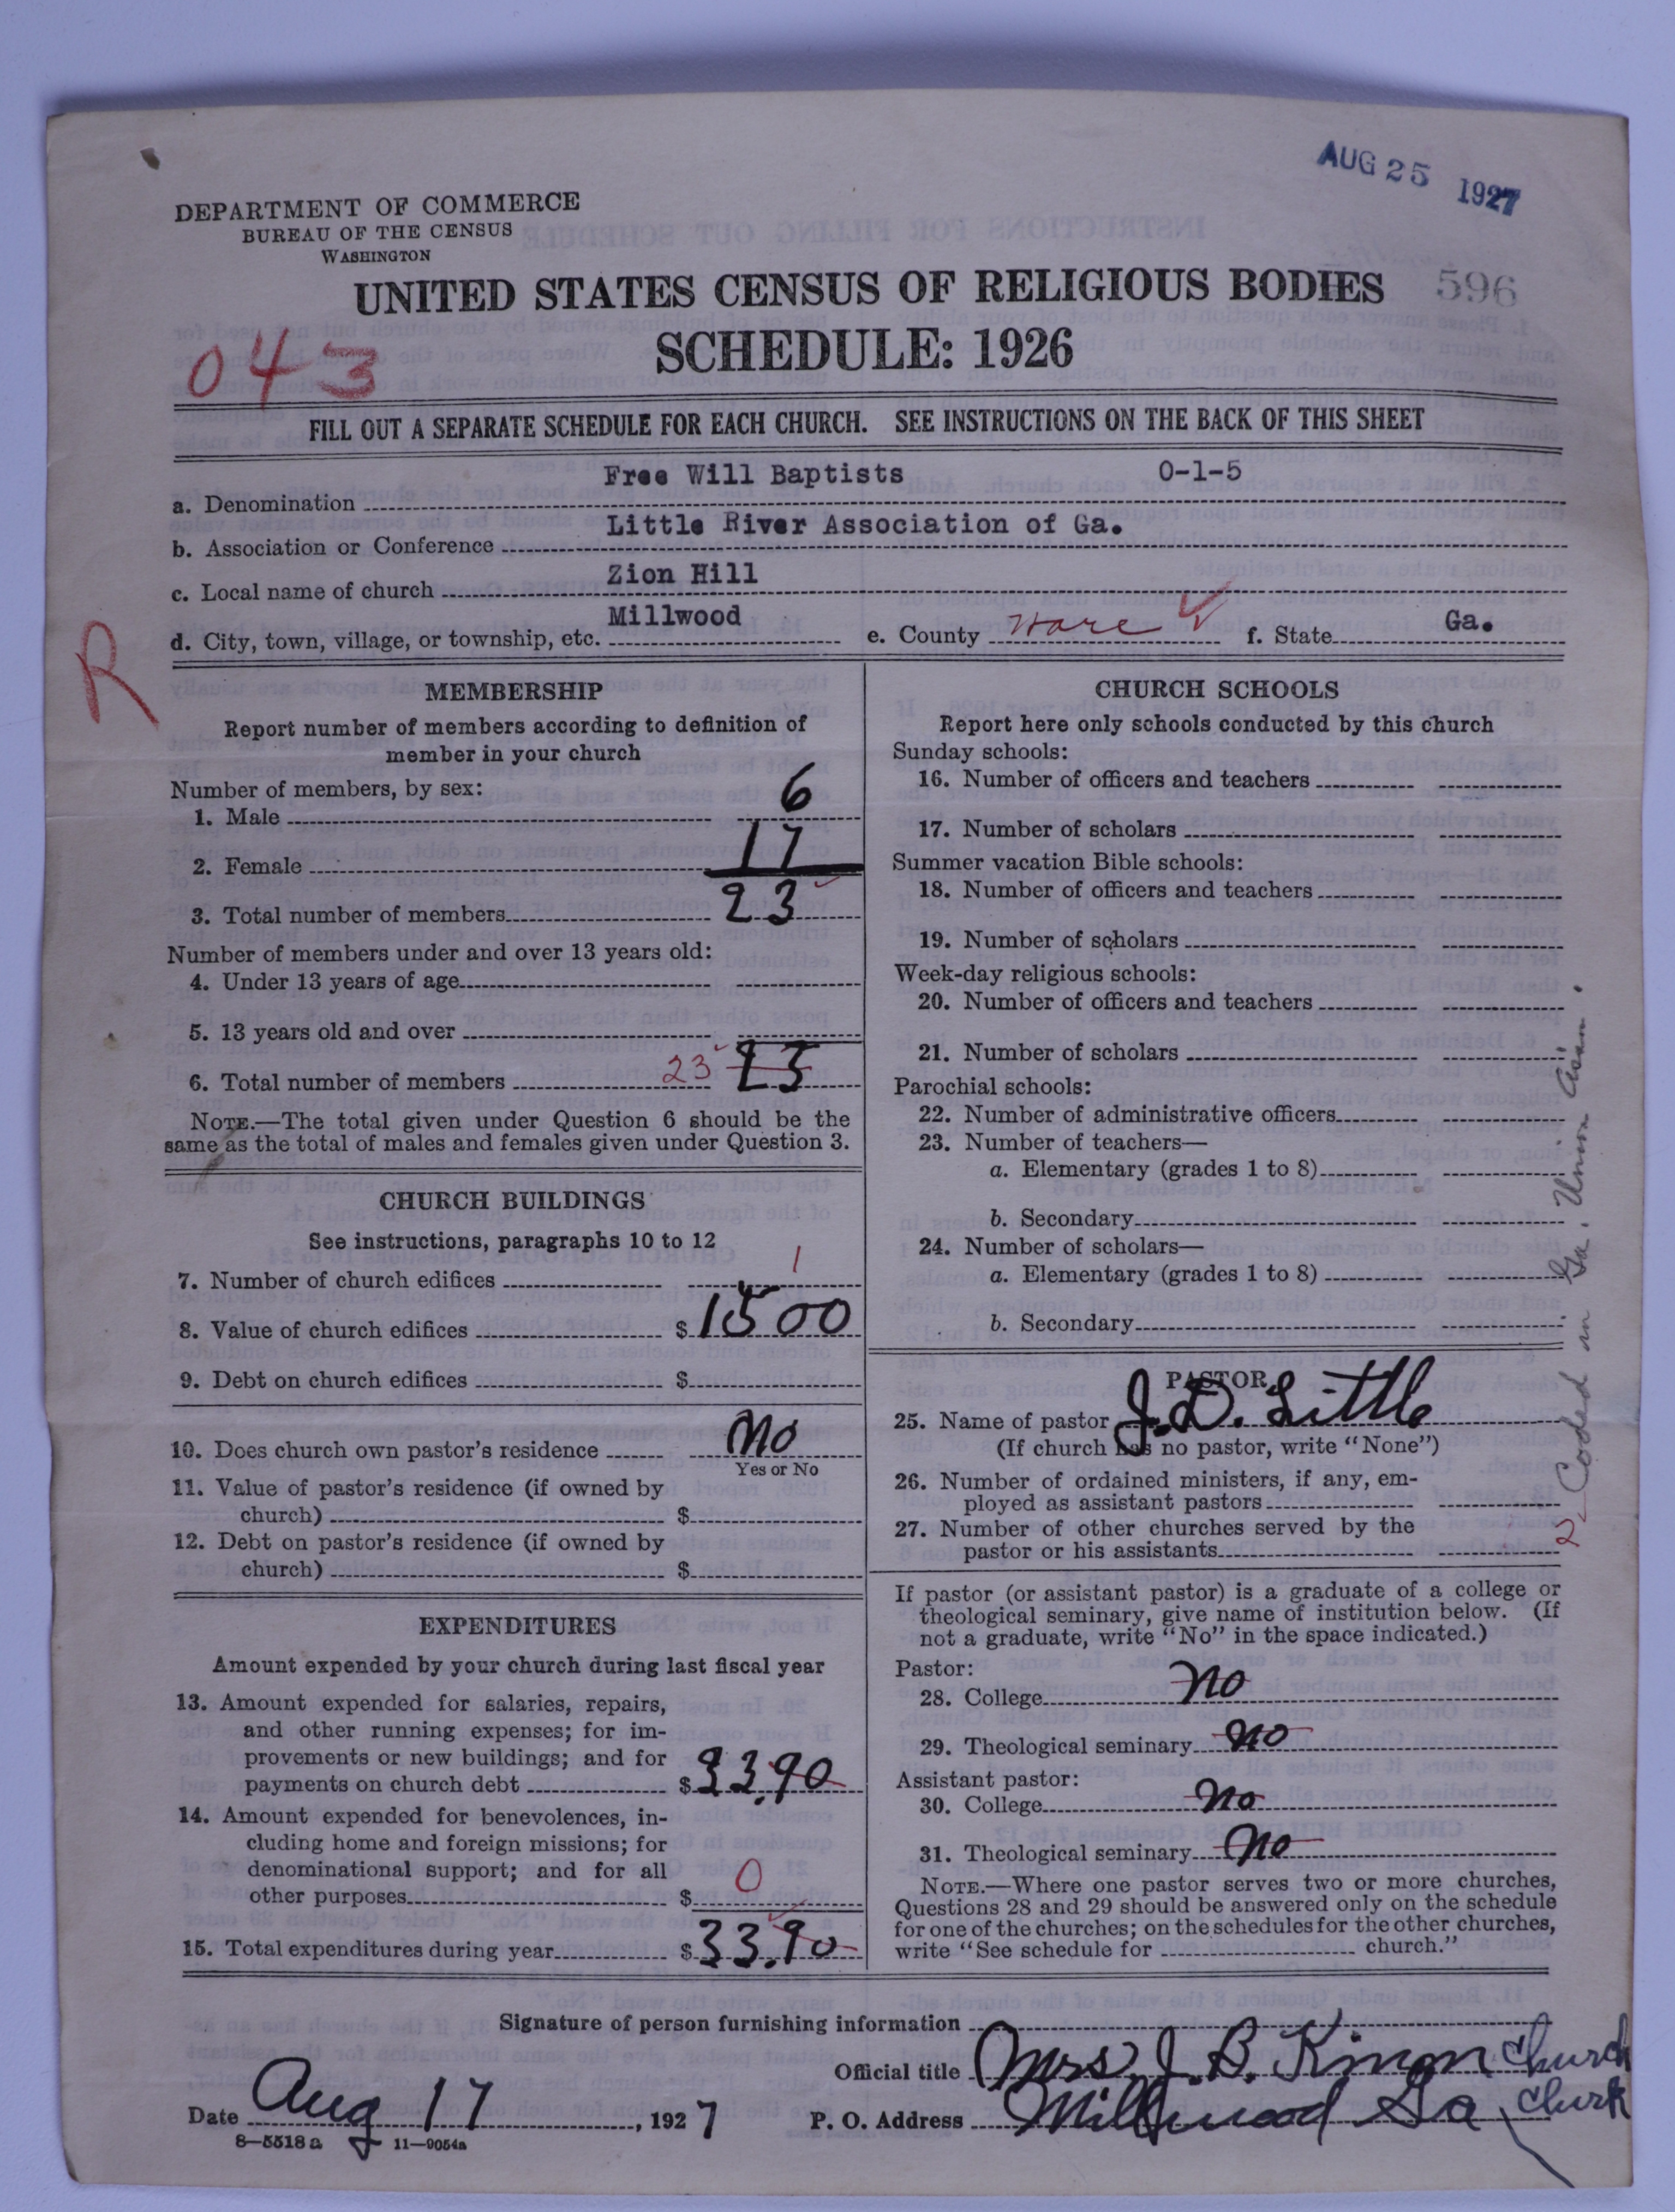 AUG 25 1927
DEPARTMENT OF COMMERCE
BUREAU OF THE CENSUS
WASHINGTON
UNITED STATES CENSUS OF RELIGIOUS BODIES 596
SCHEDULE: 1926
043
FILL OUT A SEPARATE SCHEDULE FOR EACH CHURCH. SEE INSTRUCTIONS ON THE BACK OF THIS SHEET
a. Denomination Free Will Baptists 0-1-5
b. Association or Conference Little River Association of Ga.
c. Local name of church Zion Hill
d. City, town, village, or township, etc. Millwood e. County Ware f. State Ga.
R
MEMBERSHIP
Report number of members according to definition of
member in your church
Number of members, by sex:
1. Male 6
2. Female 17
3. Total number of members 23
Number of members under and over 13 years old:
4. Under 13 years of age
5. 13 years old and over
6. Total number of members 23 23
NOTE.—The total given under Question 6 should be the
same as the total of males and females given under Question 3.
CHURCH BUILDINGS
See instructions, paragraphs 10 to 12
7. Number of church edifices 1
8. Value of church edifices $1500
9. Debt on church edifices $
10. Does church own pastor's residence No
Yes or No
11. Value of pastor's residence (if owned by
church) $
12. Debt on pastor's residence (if owned by
church) $
EXPENDITURES
Amount expended by your church during last fiscal year
13. Amount expended for salaries, repairs,
and other running expenses; for im-
provements or new buildings; and for
payments on church debt $33.90
14. Amount expended for benevolences, in-
cluding home and foreign missions; for
denominational support; and for all
other purposes $ 0
15. Total expenditures during year $33.90
CHURCH SCHOOLS
Report here only schools conducted by this church
Sunday schools:
16. Number of officers and teachers
17. Number of scholars
Summer vacation Bible schools:
18. Number of officers and teachers
19. Number of scholars
Week-day religious schools:
20. Number of officers and teachers
21. Number of scholars
Parochial schools:
22. Number of administrative officers
23. Number of teachers—
a. Elementary (grades 1 to 8)
b. Secondary
24. Number of scholars—
a. Elementary (grades 1 to 8)
b. Secondary
PASTOR
25. Name of pastor J. D. Little
(If church has no pastor, write "None")
26. Number of ordained ministers, if any, em-
ployed as assistant pastors
27. Number of other churches served by the
pastor or his assistants 2
If pastor (or assistant pastor) is a graduate of a college or
theological seminary, give name of institution below. (If
not a graduate, write "No" in the space indicated.)
Pastor:
28. College no
29. Theological seminary no
Assistant pastor:
30. College no
31. Theological seminary no
NOTE.—Where one pastor serves two or more churches,
Questions 28 and 29 should be answered only on the schedule
for one of the churches; on the schedules for the other churches,
write "See schedule for church."
Coded in Ga. Union Assn.
Signature of person furnishing information
Official title Mrs. J. B. Church
Date Aug 17, 1927 P. O. Address Millwood Ga Clurk
8—5518a 11—9054a